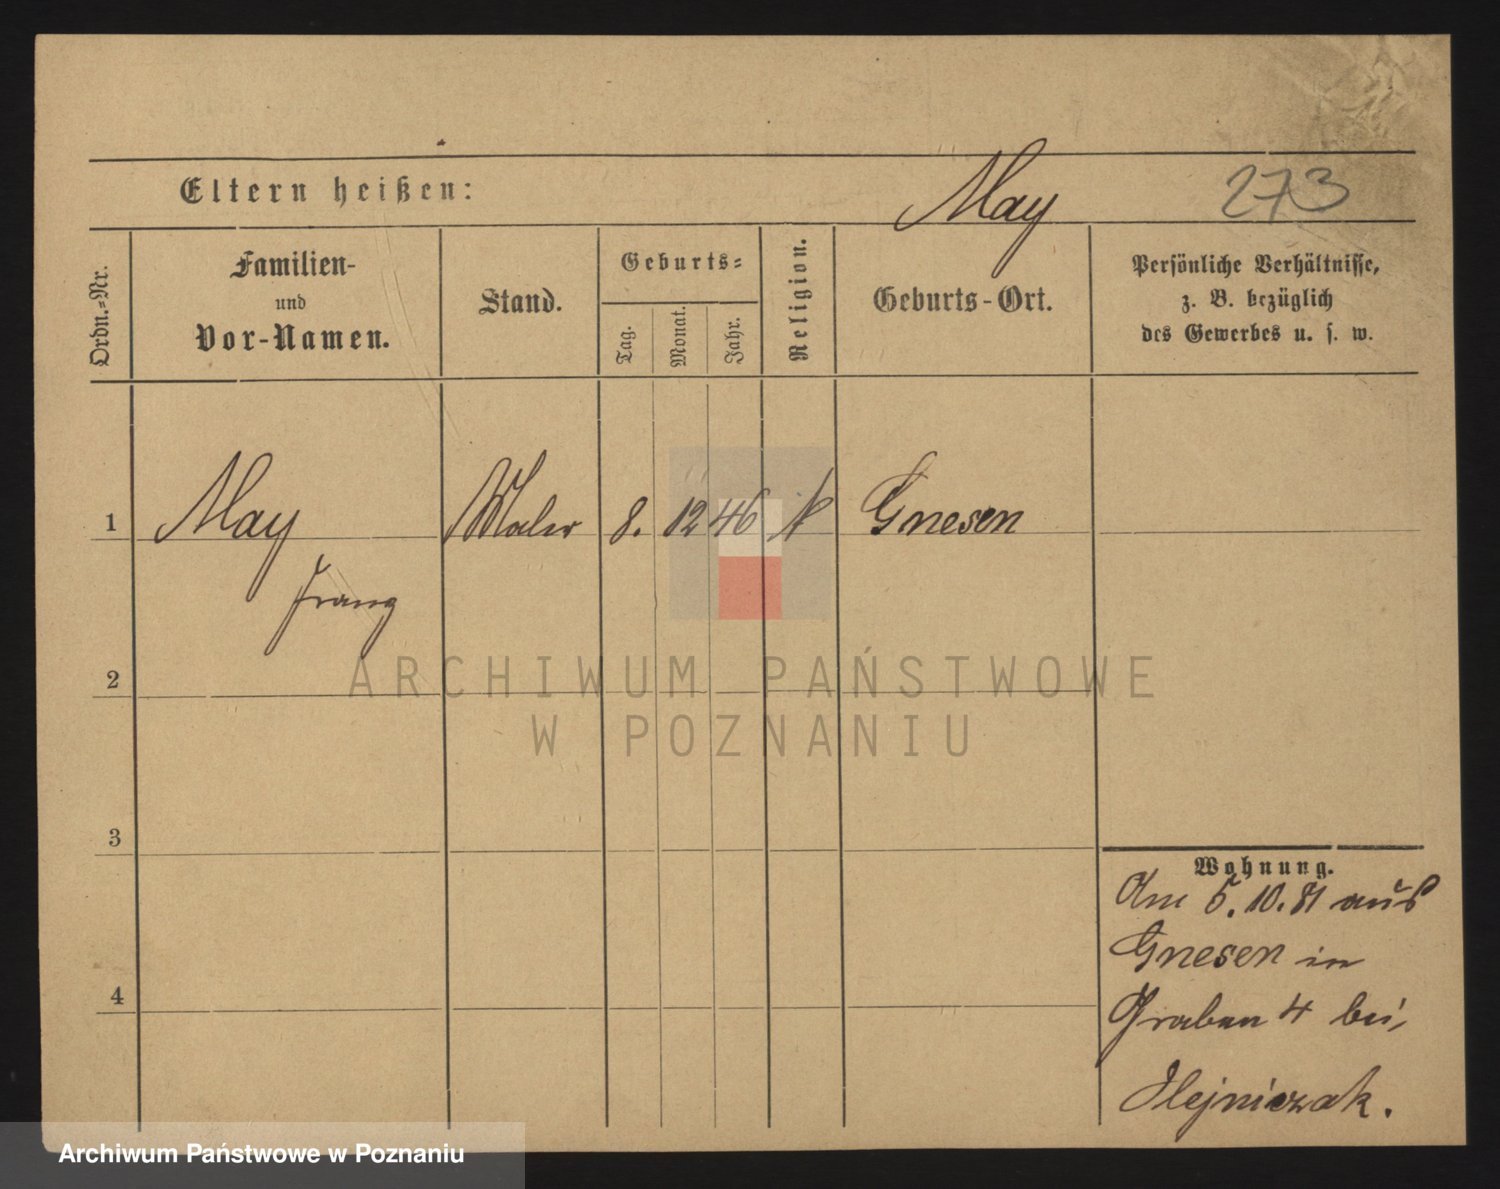 Eltern heißen:
May
273
Ordn.-Nr.
Familien-
und
Vor-Namen.
Stand.
Geburts-
Tag.
Monat.
Jahr.
Religion.
Geburts-Ort.
Persönliche Verhältnisse,
z. B. bezüglich
des Gewerbes u. s. w.
1
May
Maler
8.
12
46
k
Gnesen
Franz
2
3
4
Wohnung.
Am 5.10.81 aus
Gnesen in
Graben 4 bei,
Olejniczak.
ARCHIWUM PAŃSTWOWE
W POZNANIU
Archiwum Państwowe w Poznaniu